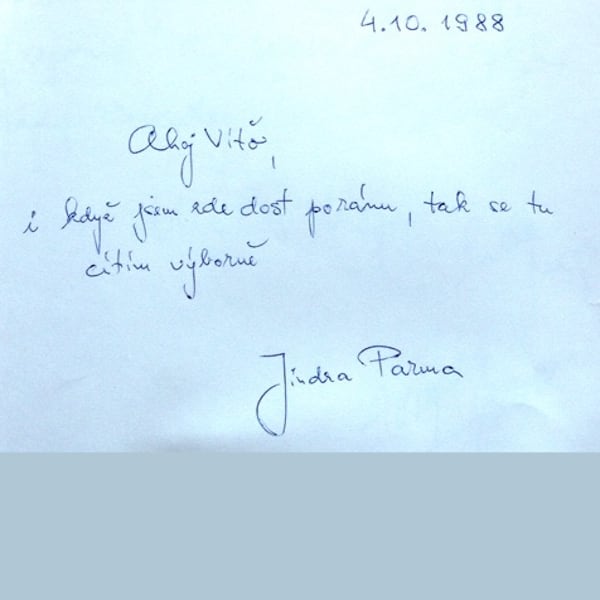 4.10. 1988
Ahoj Vítě,
i když jsem zde dost poránu, tak se tu
cítím výborně
Jindra Parma